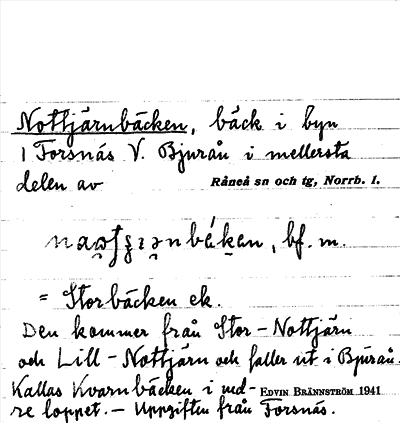 Nottjärnbäcken, bäck i byn
1 Forsnäs V. Bjurån i mellersta
delen av Råneå sn och tg, Norrb. l.
bf. m.
= Storbäcken ek.
Den kommer från Stor-Nottjärn
och Lill-Nottjärn och faller ut i Bjurån.
Kallas Kvarnbäcken i ned- EDVIN BRÄNNSTRÖM 1941
re loppet. – Uppgiften från Forsnäs.